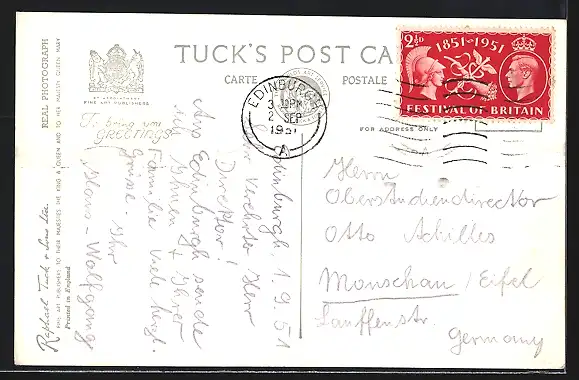 TUCK'S POST CA
CARTE POSTALE
FOR ADDRESS ONLY
REAL PHOTOGRAPH
FINE ART PUBLISHERS
To bring you
greetings
Raphael Tuck & Sons Ltd.
FINE ART PUBLISHERS TO THEIR MAJESTIES THE KING & QUEEN AND TO HER MAJESTY QUEEN MARY
Printed in England
EDINBURGH
2 SEP
1951
A
2½D
1851-1951
FESTIVAL OF BRITAIN
Edinburgh, 1.9.51
Sehr Verehrter Herr
Direktor!
Aus Edinburgh sende
ich Ihnen + Ihrer
Familie viele herzl.
Grüsse - Ihr
Hans-Wolfgang
Herrn
Oberstudiendirector
Otto Achilles
Monschau / Eifel
Lauffenstr.
Germany